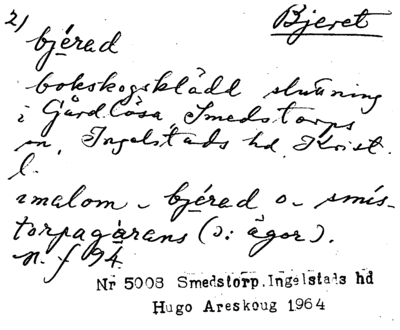 2) Bjeret
bjérad
bokskogsklädd sluttning
i Gårdlösa, Smedstorps
sn, Ingelstads hd, Krist.
l.
imalom - bjérad o - smis-
torpagàrans (ɔ: ägor).
n. f 94.
Nr 5008 Smedstorp. Ingelstads hd
Hugo Areskoug 1964